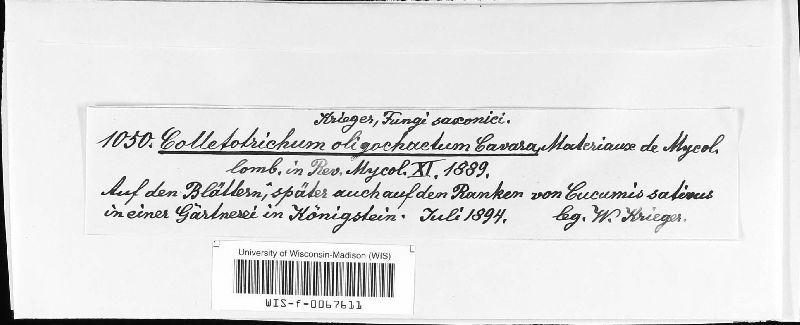 Krieger, Fungi saxonici.
1050. Colletotrichum oligochaetum Cavara, Materiaux de Mycol.
lomb. in Rev. Mycol. XI. 1889.
Auf den Blättern, später auch auf den Ranken von Cucumis sativus
in einer Gärtnerei in Königstein. Juli 1894. lg. W. Krieger.
University of Wisconsin-Madison (WIS)
WIS-f-0067611